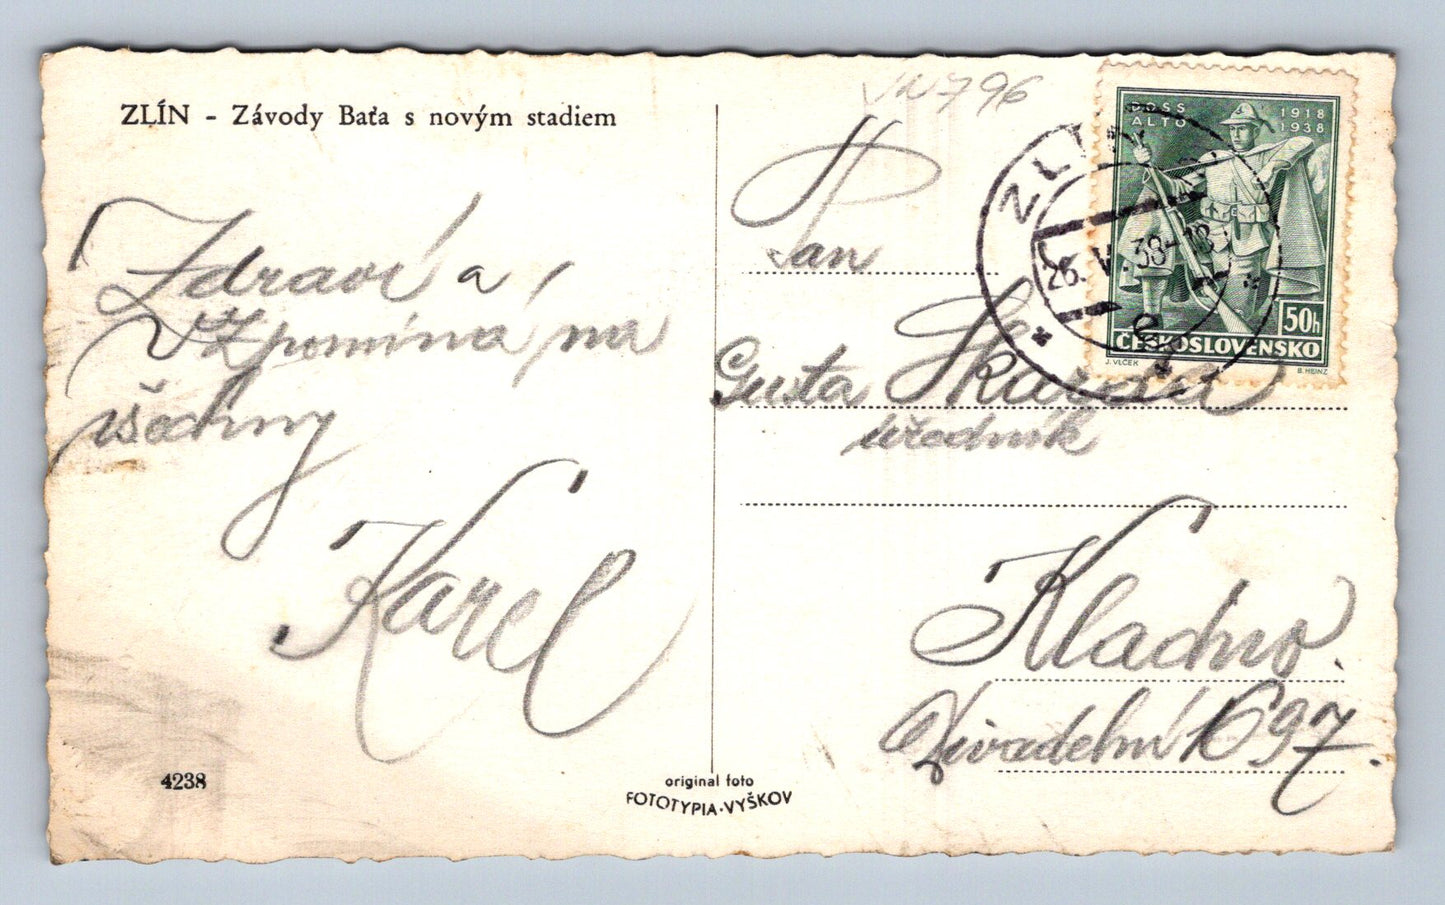 ZLÍN - Závody Baťa s novým stadiem
796
Zdraví a
vzpomíná na
všechny
Karel
4238
original foto
FOTOTYPIA-VYŠKOV
Pan
Gusta
úředník
Kladno.
Divadelní 1697.
ZLÍN
26. V. 38-18
e
DOSS
ALTO
1918
1938
50h
ČESKOSLOVENSKO
J. VLČEK
B. HEINZ